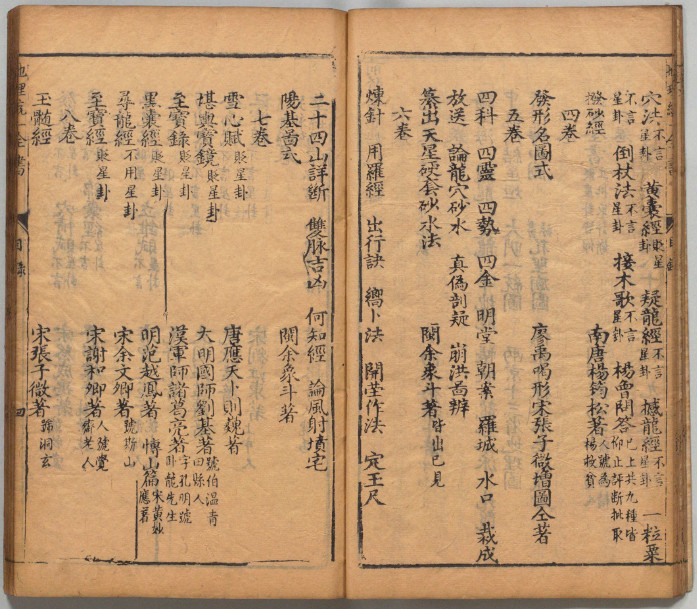 穴法不言星卦 黄囊經貶星卦 疑龍經不言星卦 撼龍經不言星卦 一粒粟
不言星卦 倒杖法不言星卦 接木歌不言星卦 楊曾問答已上共九種皆仰止評断批取
撥砂經 南唐楊筠松著人號為楊救貧
四卷
發形名圖式 廖禹喝形宋張子微增圖仝著
五卷
四科 四靈 四勢 四金 明堂 朝案 羅城 水口 裁成
放送 論龍穴砂水 真偽剖疑 崩洪啚辨
纂出天星硬套砂水法 閩余象斗著皆出己見
六卷
煉針 用羅經 出行訣 嚮卜法 開茔作法 定王尺
二十四山詳断 雙脉吉凶 何知經 論風射墳宅
陽基啚式 閩余象斗著
七卷
雪心賦貶星卦 唐應天卜則巍著
堪輿寶鏡貶星卦 大明國師劉基著號伯温青田縣人
至寶錄貶星卦 漢軍師諸葛亮著字孔明號卧龍先生
黑囊經貶星卦 明范越鳳著 博山篇宋黄妙應著
尋龍經不用星卦 宋余文卿著
至寶經貶星卦 宋謝和卿著人號覺齋老人
八卷
玉髓經 宋張子微著號洞玄
地理統一全書
目錄
四